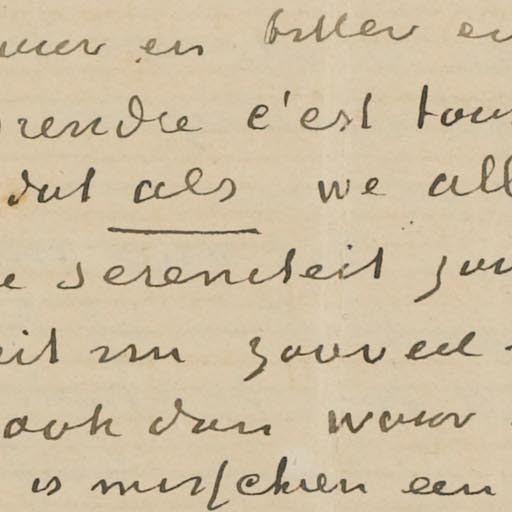 en bitter en
prendre c'est tou
dat als we all
sereniteit zou
eit nu zooveel
ook dan waar
is misschien een